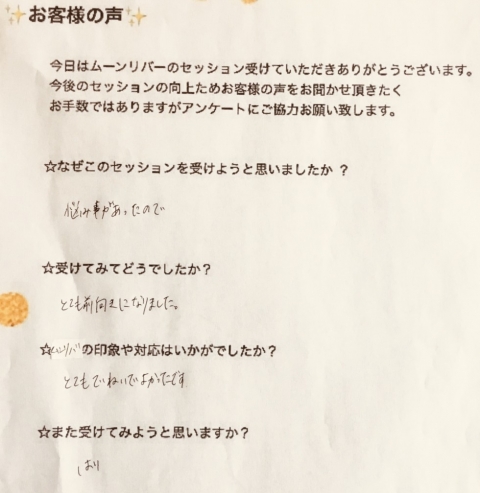 ✨お客様の声✨
今日はムーンリバーのセッション受けていただきありがとうございます。
今後のセッションの向上ためお客様の声をお聞かせ頂きたく
お手数ではありますがアンケートにご協力お願い致します。
☆なぜこのセッションを受けようと思いましたか ？
悩み事があったので
☆受けてみてどうでしたか？
とても前向きになりました。
☆ の印象や対応はいかがでしたか？
とてもていねいでよかったです
☆また受けてみようと思いますか？
はい